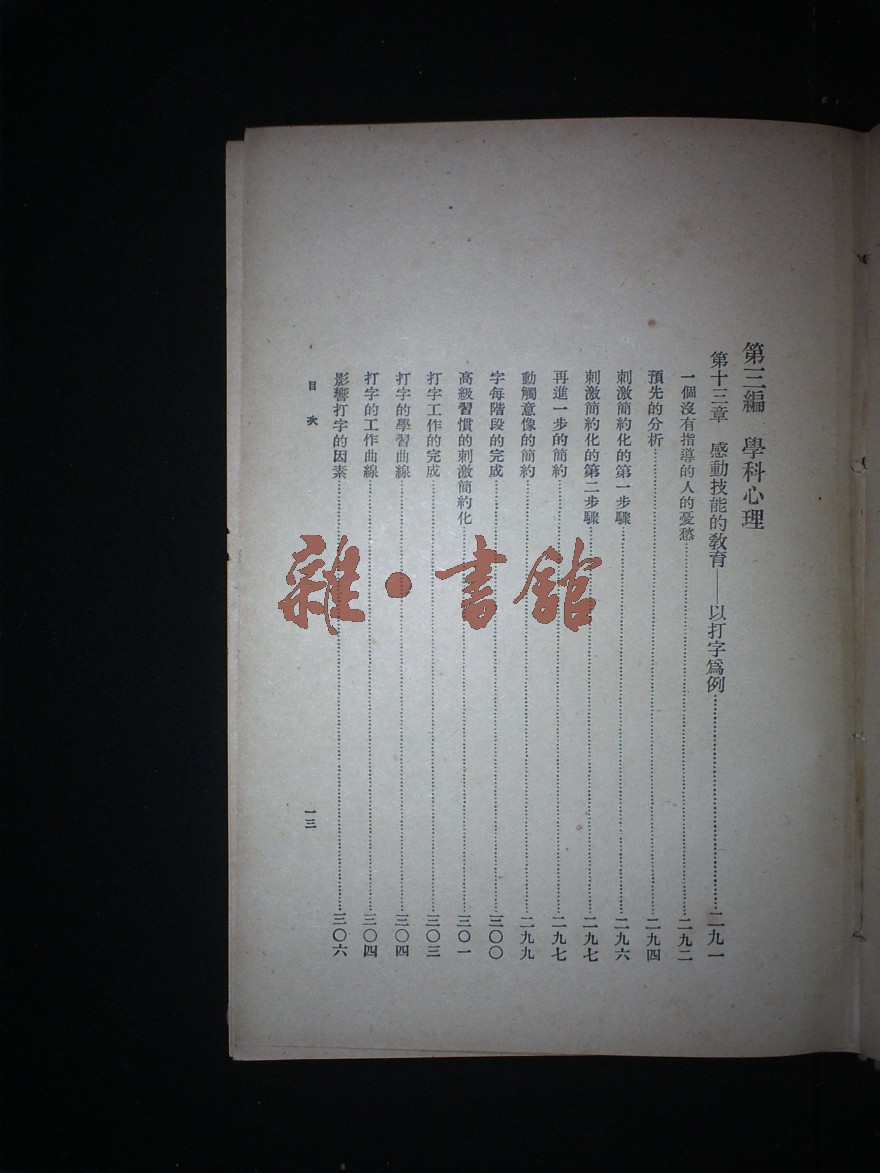 第三編　學科心理
第十三章　感動技能的教育——以打字爲例……二九一
一個沒有指導的人的憂愁……二九二
預先的分析……二九四
刺激簡約化的第一步驟……二九六
刺激簡約化的第二步驟……二九七
再進一步的簡約……二九七
動觸意像的簡約……二九九
字每階段的完成……三〇〇
高級習慣的刺激簡約化……三〇一
打字工作的完成……三〇三
打字的學習曲線……三〇四
打字的工作曲線……三〇四
影響打字的因素……三〇六
目次
一三
雜・書館